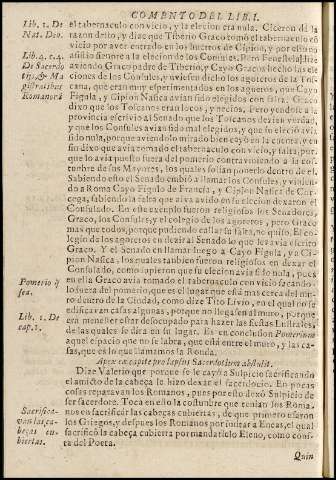 COMENTO DEL LIB. I.
Lib. 2. De
Nat. Deo.
Lib. 4. c. 4.
De Sacerdo
tijs, & Ma
gistratibus
Romanorũ
el tabernaculo con vicio, y la eleccion era nula. Ciceron dà la
razon desto, y dize que Tiberio Graco tomò el tabernaculo cõ
vicio por aver entrado en los huertos de Cipion, y por ello no
assistio a la eleccion de los Consules. Pero Fenestela dize
aviendo Graco padre de Tiberio, y Cayo Gracos hecho las ele
ciones de los Consules, y uviessen dicho los agoreros de la Tos-
cana, que eran muy esperimentados en los agueros, que Cayo
Figula, y Cipion Nasica avian sido elegidos con falta, Graco
dixo que los Toscanos eran locos, y necios, Pero yendose a la
provincia escrivio al Senado que los Toscanos dezien verdad,
y que los Consules avian sido mal elegidos, y que su eleccion aviã
sido nula, porque aviendolo mirado bien cayò en la cuenta, y en
fin dixo que avia tomado el tabernaculo con vicio, y falta, por-
que lo avia puesto fuera del pomerio contraviniendo a la cos-
tumbre de sus Mayores, los quales solian ponerlo dentro de el.
Sabiendo esto el Senado embiò a llamar los Consules, y vinien-
do a Roma Cayo Figulo de Francia, y Cipion Nasica de Cor-
cega, sabiendo la falta que avia avido en su eleccion dexaron el
Consulado. En este exemplo fueron religiosos los Senadores,
Graco, los Consules, y el colegio de los agoreros, pero Graco
mas que todos, porque pudiendo callar su falta, no quiso. El co-
legio de los agoreros en dezir al Senado lo que les avia escrito
Graco. Y el Senado en llamar luego a Cayo Figula, y a Cip-
ion Nasica, los quales tambien fueron religiosos en dexar el
Consulado, como supieron que su eleccion avia sido nula, pues
Pomerio q̃
sea.
en ella Graco avia tomado el tabernaculo con vicio sacando-
lo fuera del pomerio, que es el lugar que està mas cerca del mu-
ro dentro de la Ciudad, como dize Tito Livio, en el qual no se
Lib. 1. De
cap. 1.
edificavan casas algunas, porque no llegassen al muro, porque
era menester estar desocupado para hazer las fiestas Lustrales,
de las quales se dira en su lugar. Es en conclusion Pomerium
aquel espacio que no se labra, que està entre el muro, y las ca-
sas, que es lo que llamamos la Ronda.
Apex è capite prolapsus Sacerdotium abstulit.
Dize Valerio que porque se le cayò a Sulpicio sacrificando
el amicto de la cabeça le hizo dexar el sacerdocio. En pocas
cosas reparavan los Romanos, pues por esto dexò Sulpicio de
ser sacerdote. Toca en esto la costumbre que tenian los Roma-
Sacrifica-
van las ca-
beças cu-
biertas.
nos en sacrificar las cabeças cubiertas, de que primero usaron
los Griegos, y despues los Romanos por imitar a Eneas, el qual
sacrificò la cabeça cubierta por mandarselo Eleno, como cons-
ta del Poeta.
Quin